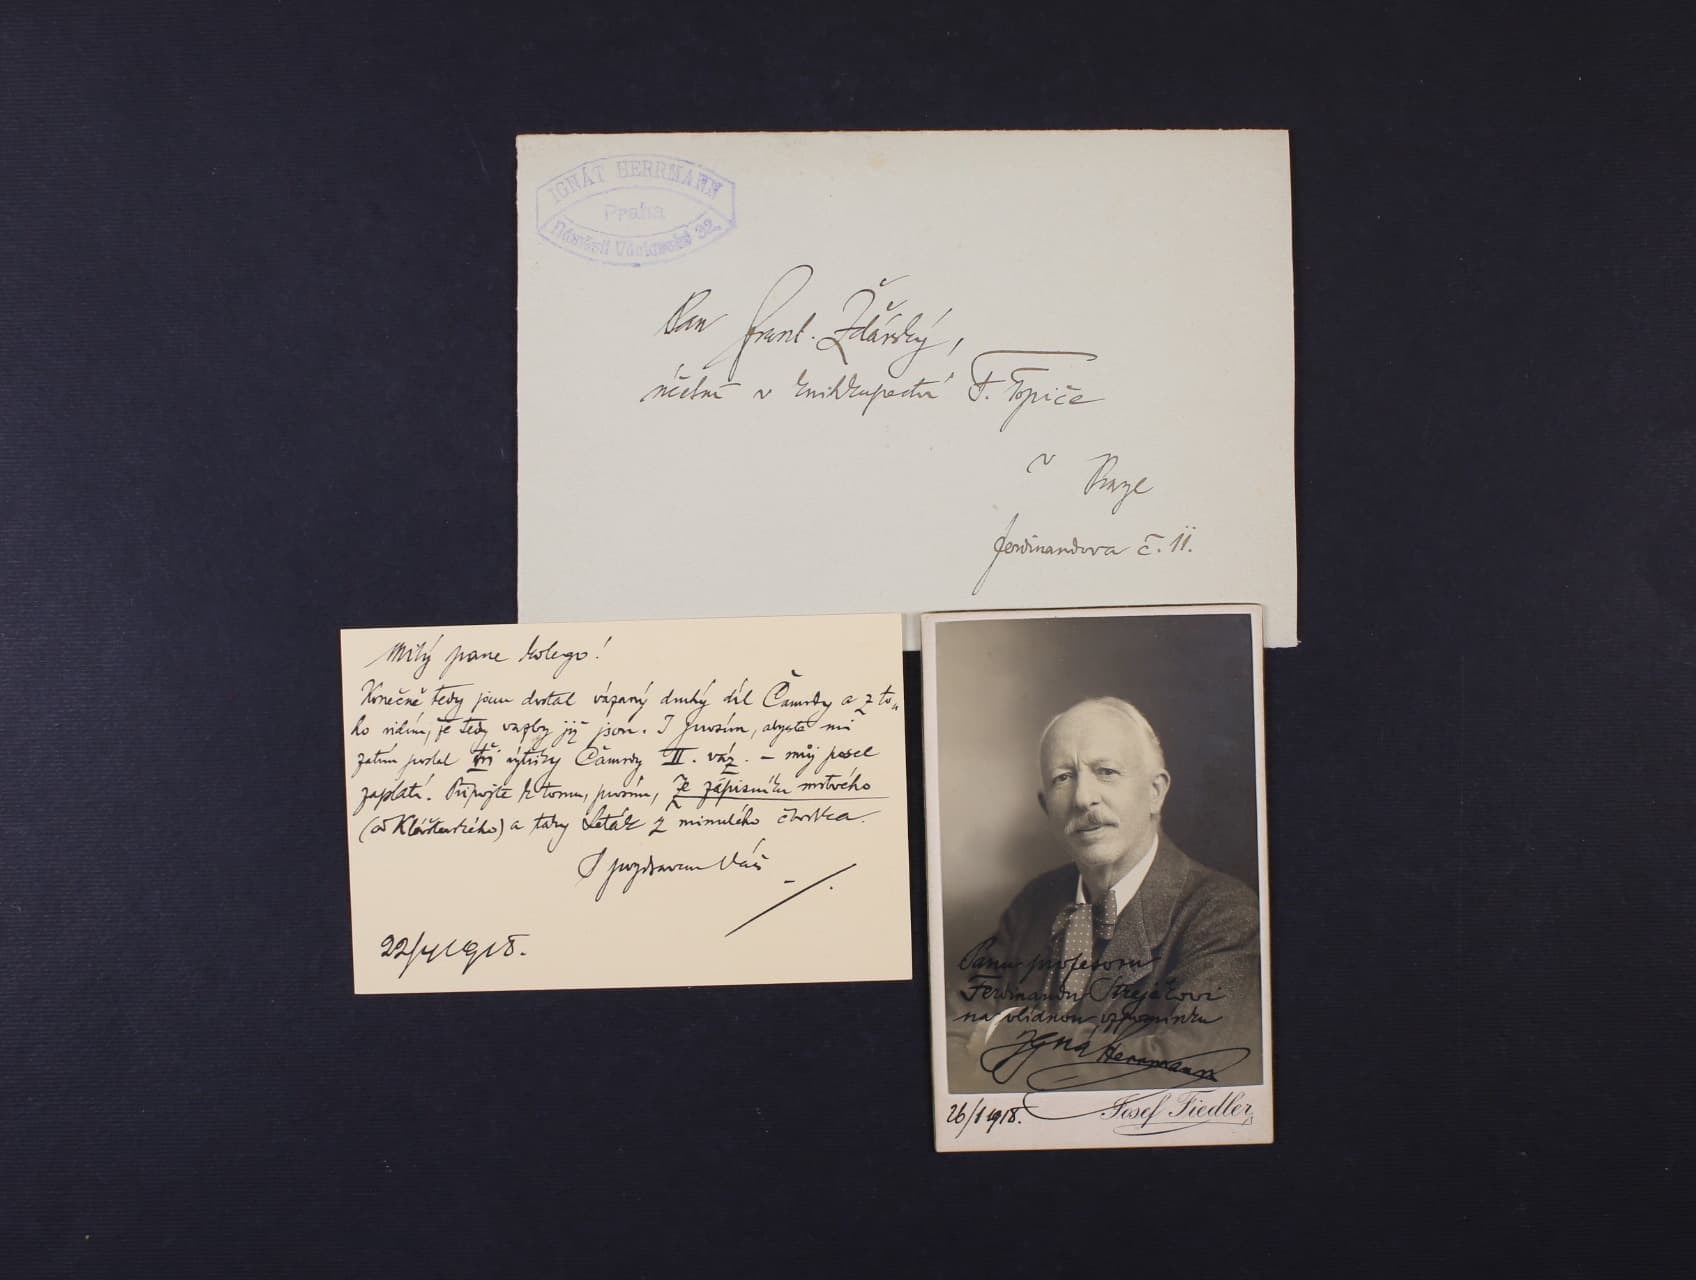 IGNÁT HERRMANN
Praha
Náměstí Václavské 32
Pan Frant. Žďárský,
účetní v knihkupectví F. Topiče
v Praze
Ferdinandova č. 11.
Milý pane kolego!
Konečně tedy jsem dostal vázaný druhý díl Čamrdy a z to„
ho vidím, že tedy vazby již jsou. I prosím, abyste mi
zatím poslal tři výtisky Čamrdy II. váz. – můj posel
zaplatí. Připojte k tomu, prosím, Ze zápisníku mrtvého
(od Klášterského) a taky Leták z minulého čtvrtka.
S pozdravem Váš
1918.
Panu profesoru
Ferdinandu Strejčkovi
na vlídnou vzpomínku
Ignát Herrmann
26/1 1918.
Josef Fiedler